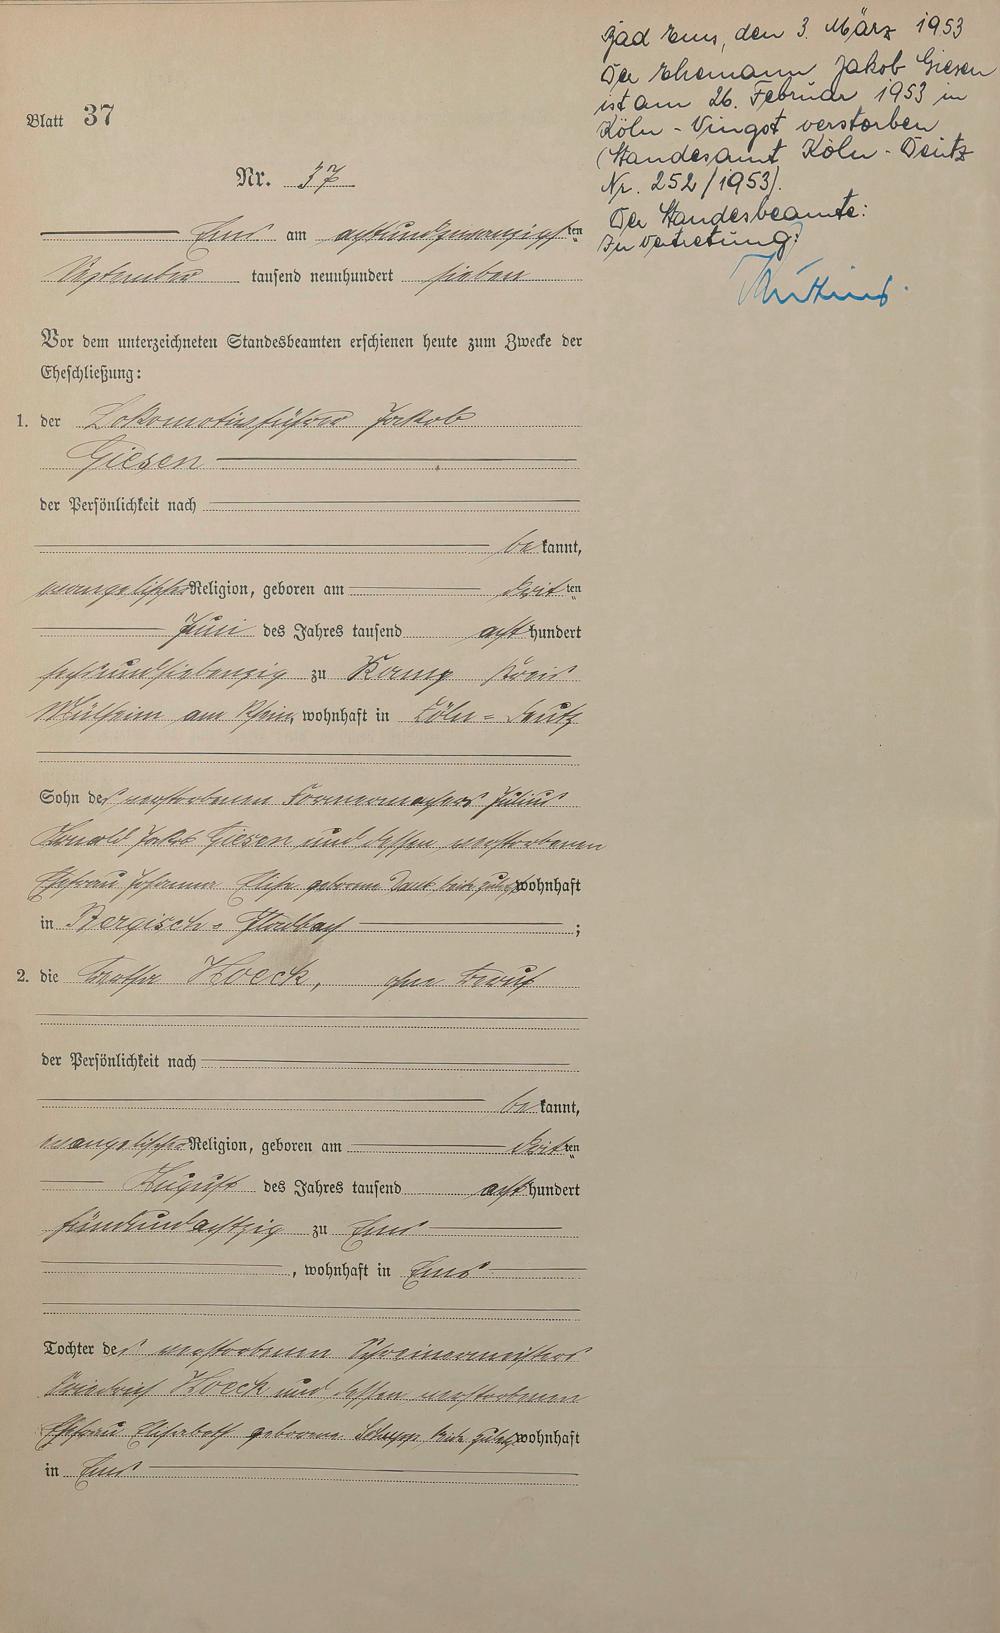 Blatt 37
Nr. 37
Ems am achtundzwanzigsten
September tausend neunhundert sieben
Vor dem unterzeichneten Standesbeamten erschienen heute zum Zwecke der
Eheschließung:
1. der Lokomotivführer Jakob
Giesen
der Persönlichkeit nach
bekannt,
evangelischer Religion, geboren am dritten
Juni des Jahres tausend achthundert
sechsundsiebenzig zu Kreis
Mülheim am Rhein, wohnhaft in Cöln-Deutz
Sohn des verstorbenen Julius
Jakob Giesen und dessen verstorbenen
Ehefrau Johanna geborene beide zuletzt wohnhaft
in Bergisch-Gladbach;
2. die Hoeck, ohne Beruf
der Persönlichkeit nach
bekannt,
evangelischer Religion, geboren am dritten
August des Jahres tausend achthundert
fünfundachtzig zu Ems
, wohnhaft in Ems
Tochter des verstorbenen Schreinermeisters
Friedrich Hoeck und dessen verstorbenen
Ehefrau Elisabeth geborene beide zuletzt wohnhaft
in Ems
Bad Ems, den 3. März 1953
Der Ehemann Jakob Giesen
ist am 26. Februar 1953 in
Köln-Vingst verstorben
(Standesamt Köln-Deutz
Nr. 252/1953).
Der Standesbeamte:
In Vertretung: